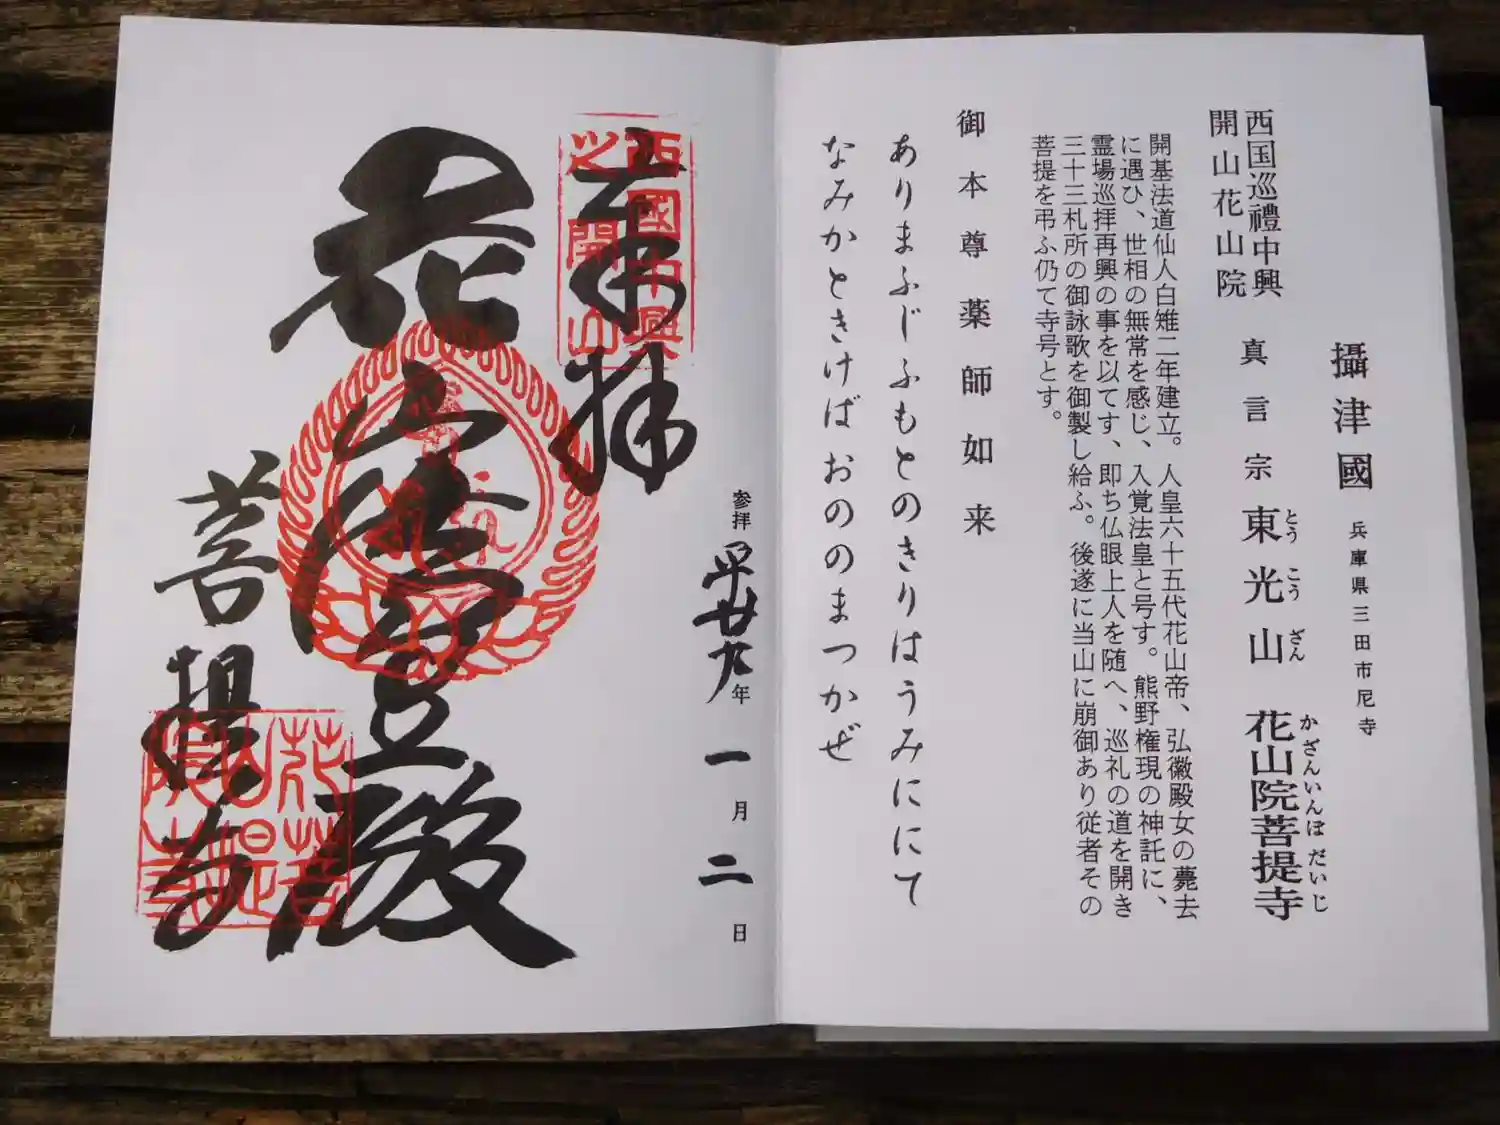 攝津國 兵庫県三田市尼寺
西国巡禮中興
開山花山院
真言宗 東光山 花山院菩提寺
とうこうざん かざんいんぼだいじ
開基法道仙人白雉二年建立。人皇六十五代花山帝、弘徽殿女の薨去
に遇ひ、世相の無常を感じ、入覚法皇と号す。熊野権現の神託に、
霊場巡拝再興の事を以てす、即ち仏眼上人を随へ、巡礼の道を開き
三十三札所の御詠歌を御製し給ふ。後遂に当山に崩御あり従者その
菩提を弔ふ仍て寺号とす。
御本尊薬師如来
ありまふじふもとのきりはうみににて
なみかときけばおののまつかぜ
参拝 平廿九年 一月 二日
奉拝
西國中興
之開山
花山
殿
菩提寺
花山院菩提寺